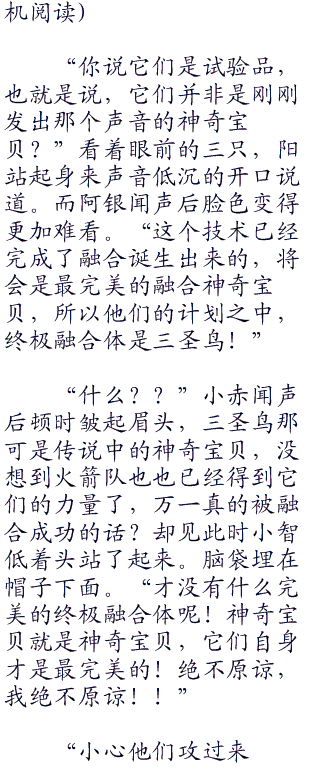 机阅读)
“你说它们是试验品，
也就是说，它们并非是刚刚
发出那个声音的神奇宝
贝？”看着眼前的三只，阳
站起身来声音低沉的开口说
道。而阿银闻声后脸色变得
更加难看。“这个技术已经
完成了融合诞生出来的，将
会是最完美的融合神奇宝
贝，所以他们的计划之中，
终极融合体是三圣鸟！”
“什么？？”小赤闻声
后顿时皱起眉头，三圣鸟那
可是传说中的神奇宝贝，没
想到火箭队也也已经得到它
们的力量了，万一真的被融
合成功的话？却见此时小智
低着头站了起来。脑袋埋在
帽子下面。“才没有什么完
美的终极融合体呢！神奇宝
贝就是神奇宝贝，它们自身
才是最完美的！绝不原谅，
我绝不原谅！！”
“小心他们攻过来